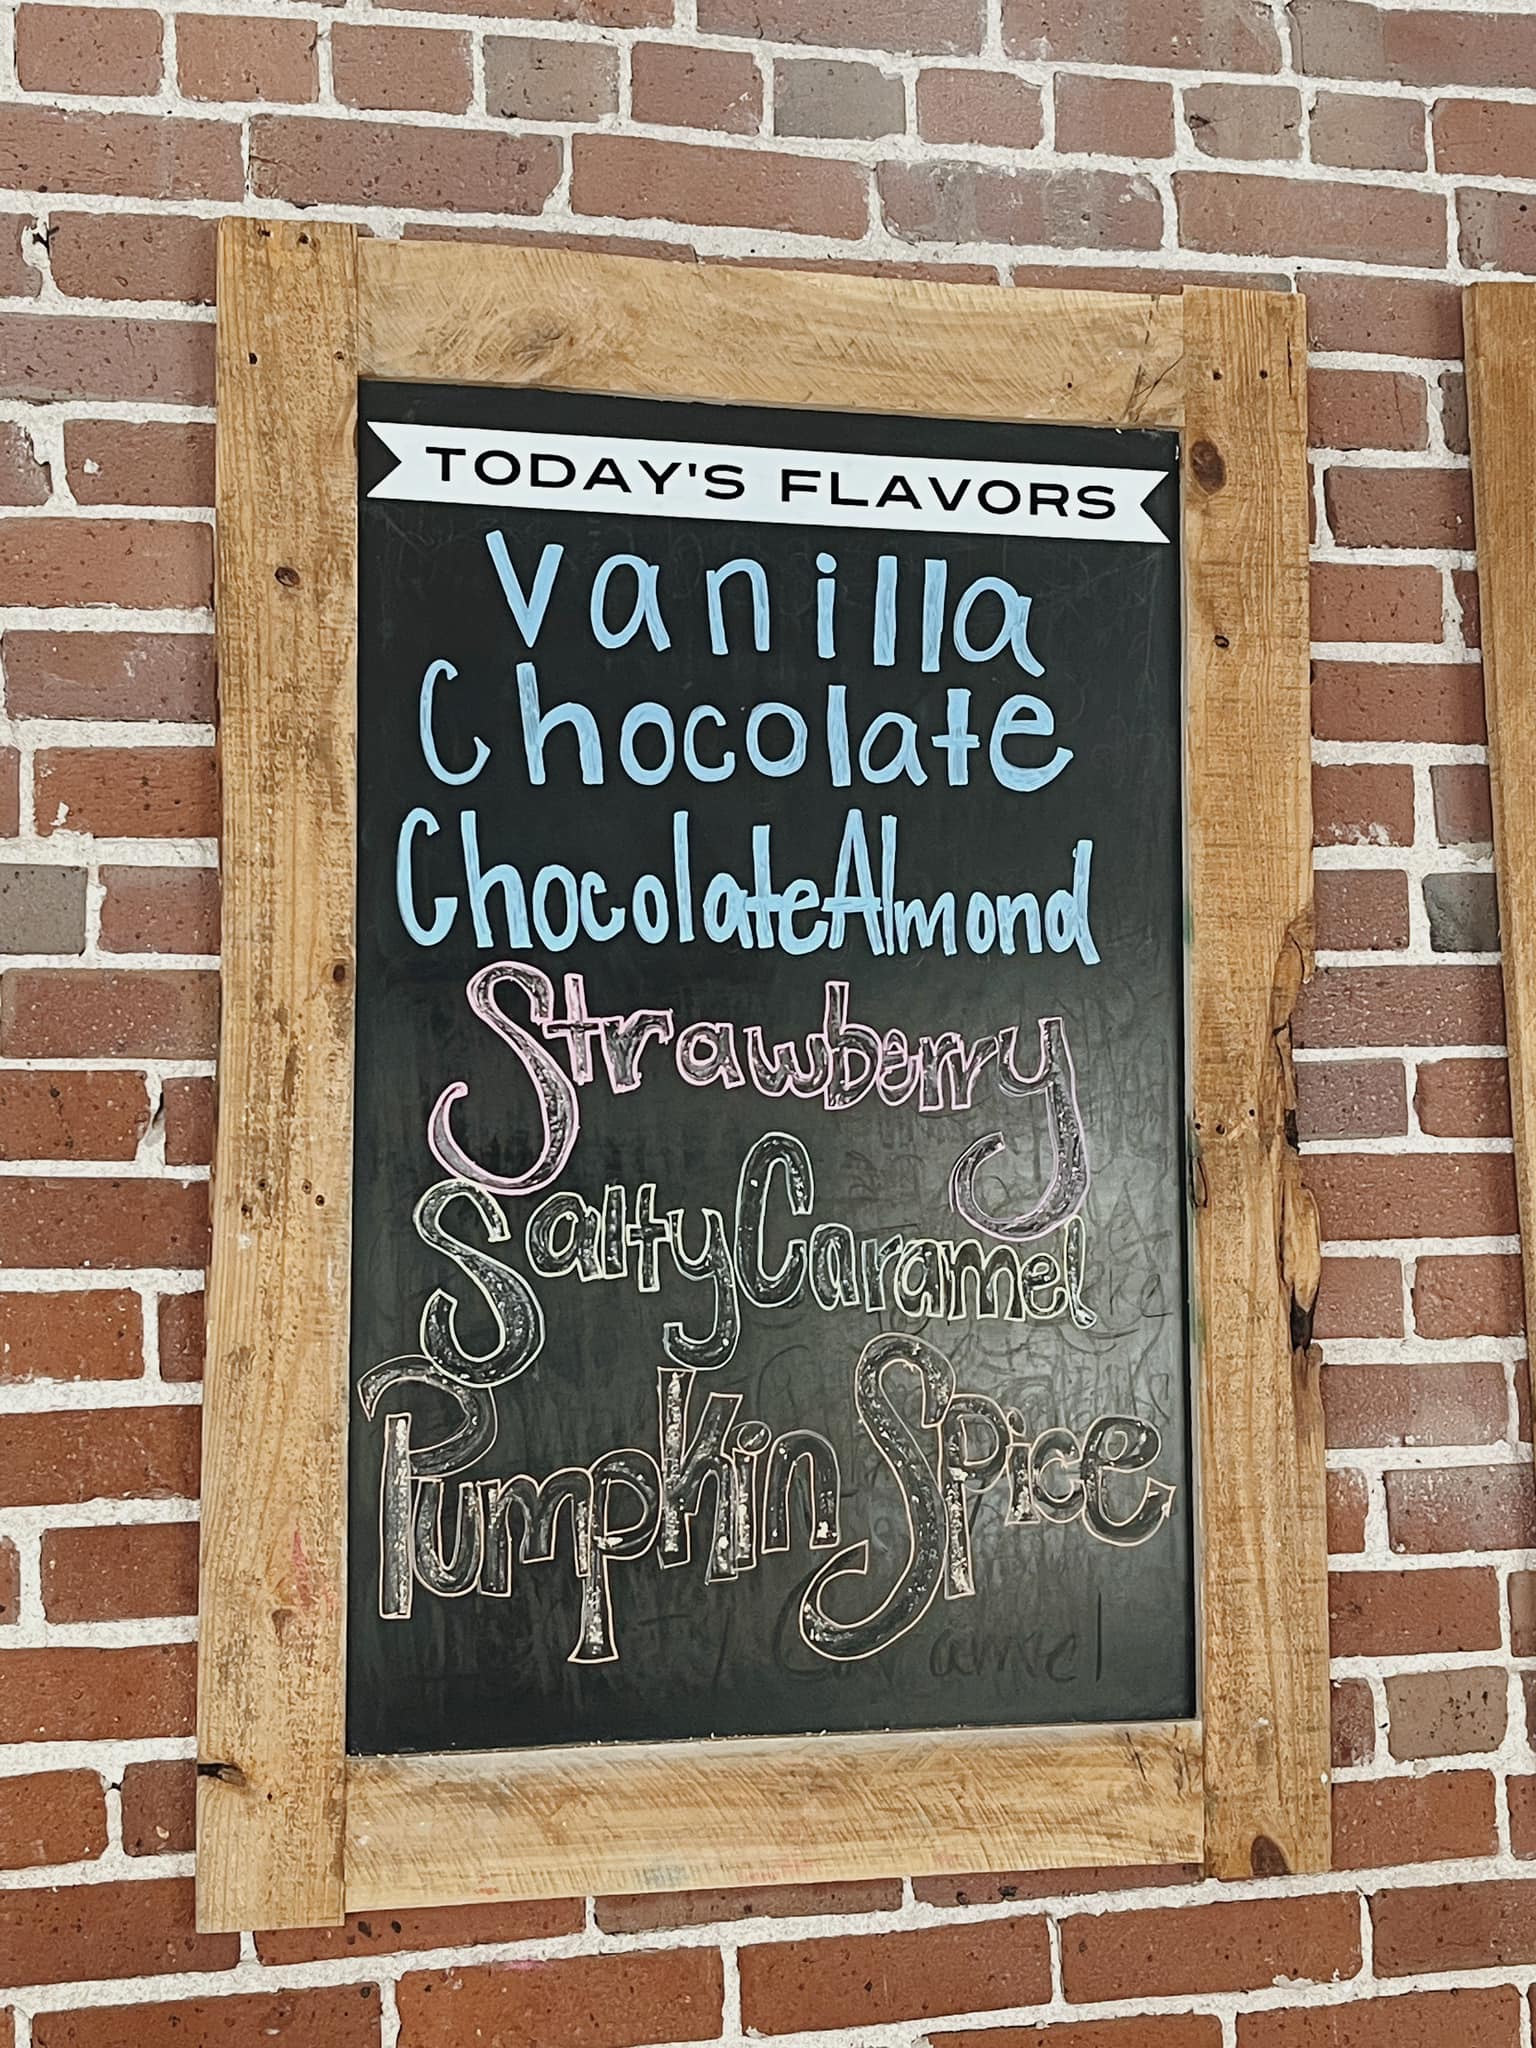 TODAY'S FLAVORS
Vanilla
Chocolate
Chocolate Almond
Strawberry
Salty Caramel
Pumpkin Spice
Caramel